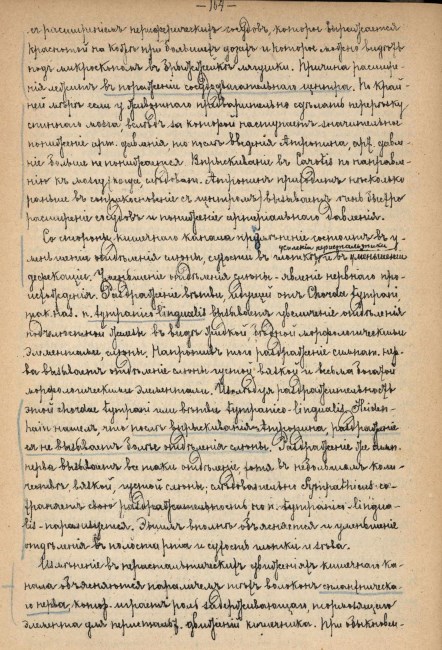 — 164 —
съ расширенiемъ периферическихъ сосудовъ, которое выражается
краснотой на кожѣ при большихъ дозахъ и которое можно видѣть
подъ микроскопомъ въ брыжжейкѣ лягушки. Причина расшире-
нiя лежитъ въ пораженiи сосудодвигательнаго центра. По край-
ней мѣрѣ если у животнаго предварительно сдѣлать перерѣзку
спиннаго мозга, вслѣдъ за которой наступаетъ значительное
пониженiе арт. давленiя, то послѣ введенiя Атропина, арт. давле-
нiе больше не понижается. Впрыскиванiе въ Carotis по направле-
нiю къ мозгу (когда, слѣдоват. Атропинъ приходитъ нѣсколько
раньше въ соприкосновенiе съ центромъ) вызываетъ очень быстро
расширенiе сосудовъ и пониженiе артерiальнаго давленiя.
Со стороны кишечнаго канала измѣненiе состоитъ въ у-
меньшенiи отдѣленiя слюны, сухости въ глоткѣ и въ уменьшенiи
усиленiи перистальтики
дефекацiи. Уменьшенiе отдѣленiя слюны - явленiе нервнаго про-
исхожденiя. Раздраженiе вѣтви, идущей отъ Chorda tympani,
такъ наз. n. tympanico-lingualis вызываетъ увеличенiе отдѣленiя
подчелюстной железы въ видѣ жидкой, бѣдной морфологическими
элементами слюны. Напротивъ того раздраженiе симпат. нер-
ва вызываетъ отдѣленiе слюны густой вязкой и весьма богатой
морфологическими элементами. Изслѣдуя раздражительность
этой chordae tympani или вѣтви tympanico-lingualis, Heiden-
hain нашелъ, что послѣ впрыскиванiя Атропина раздраженiе
ея не вызываетъ болѣе отдѣленiя слюны. Раздраженiе же симп.
нерва вызываетъ все таки отдѣленiе, хотя въ небольшомъ коли-
чествѣ, вязкой, густой слюны; слѣдовательно Sympathicus со-
храняетъ свою раздражительность, но n. tympanico-lingua-
lis - парализуется. Этимъ вполнѣ объясняется и уменьшенiе
отдѣленiя въ полости рта и сухость глотки и зѣва.
Измѣненiе въ перистальтическихъ движенiяхъ кишечнаго ка-
нала объясняются параличемъ тѣхъ волоконъ спланхническа-
го нерва, котор. играетъ роль задерживающаго, тормозящаго
элемента для перистальт. движенiй кишечника. При обыкновен-